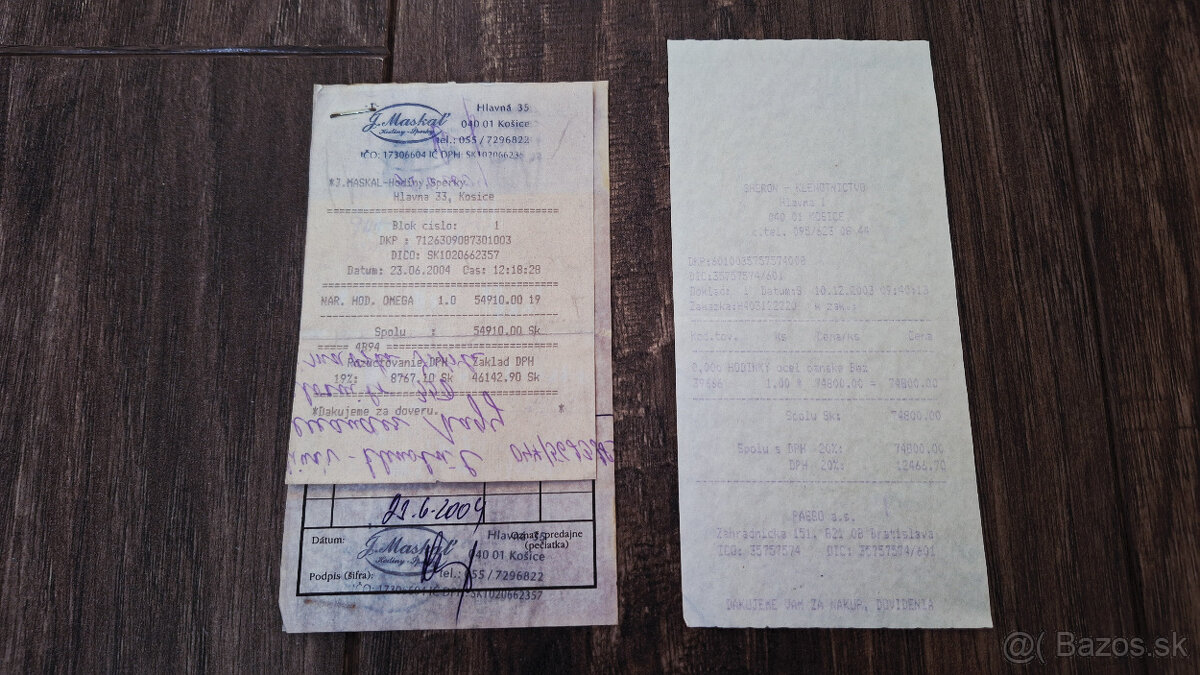 J. Maskaľ
Hodiny-Šperky
Hlavná 35
040 01 Košice
tel.: 055/7296822
IČO: 17306604 IČ DPH: SK10206623
*J.MASKAL-Hodiny,Sperky
Hlavna 33, Kosice
Blok cislo: 1
DKP : 7126309087301003
DICO: SK1020662357
Datum: 23.06.2004 Cas: 12:18:28
NAR. HOD. OMEGA 1.0 54910.00 19
Spolu : 54910.00 Sk
4B94
DPH Zaklad DPH
19%: 8767.10 Sk 46142.90 Sk
*Dakujeme za doveru. *
23.6.2004
Dátum:
predajne
(pečiatka)
J. Maskaľ
Hodiny-Šperky
Hlavná 35
040 01 Košice
Podpis (šifra):
tel.: 055/7296822
IČO: 17306604 IČ DPH: SK1020662357
SHERON - KLENOTNICTVO
Hlavna 1
040 01 KOSICE
c.tel. 095/623 08 44
DKP:6010035757574008
DIC:35757574/601
Doklad: 1 Datum: 10.12.2003
Kod.tov. Ks Cena/ks Cena
HODINKY ocel
1.00 * 74800.00 = 74800.00
Spolu Sk: 74800.00
Spolu s DPH 20%: 74800.00
DPH 20%: 12466.70
a.s.
Zahradnicka 151, 821 08 Bratislava
ICO: 35757574 DIC: 35757574/601
DAKUJEME VAM ZA NAKUP, DOVIDENIA
@( Bazos.sk